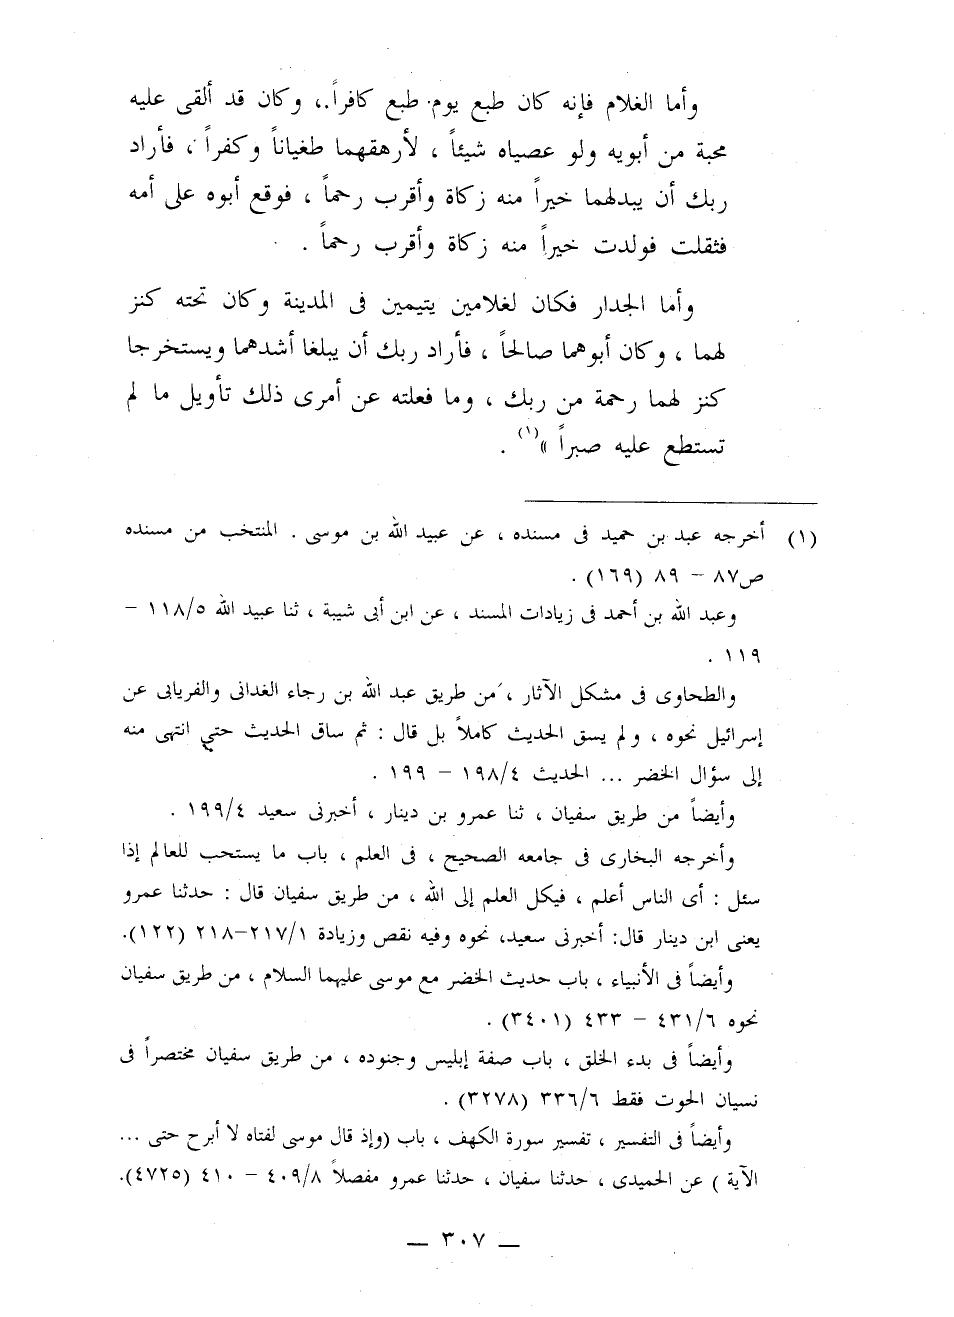 وأما الغلام فإنه كان طبع يوم طبع كافراً ، وكان قد ألقى عليه
محبة من أبويه ولو عصياه شيئاً ، لأرهقهما طغياناً وكفراً ، فأراد
ربك أن يبدلهما خيراً منه زكاة وأقرب رحماً ، فوقع أبوه على أمه
فثقلت فولدت خيراً منه زكاة وأقرب رحماً .
وأما الجدار فكان لغلامين يتيمين فى المدينة وكان تحته كنز
لهما ، وكان أبوهما صالحاً ، فأراد ربك أن يبلغا أشدهما ويستخرجا
كنز لهما رحمة من ربك ، وما فعلته عن أمرى ذلك تأويل ما لم
تستطع عليه صبراً »(١) .
(١) أخرجه عبد بن حميد فى مسنده ، عن عبيد الله بن موسى . المنتخب من مسنده
ص٨٧ – ٨٩ (١٦٩) .
وعبد الله بن أحمد فى زيادات المسند ، عن ابن أبى شيبة ، ثنا عبيد الله ١١٨/٥ –
١١٩ .
والطحاوى فى مشكل الآثار ، من طريق عبد الله بن رجاء الغدانى والفريابى عن
إسرائيل نحوه ، ولم يسق الحديث كاملاً بل قال : ثم ساق الحديث حتى انتهى منه
إلى سؤال الخضر ... الحديث ١٩٨/٤ – ١٩٩ .
وأيضاً من طريق سفيان ، ثنا عمرو بن دينار ، أخبرنى سعيد ١٩٩/٤ .
وأخرجه البخارى فى جامعه الصحيح ، فى العلم ، باب ما يستحب للعالم إذا
سئل : أى الناس أعلم ، فيكل العلم إلى الله ، من طريق سفيان قال : حدثنا عمرو
يعنى ابن دينار قال: أخبرنى سعيد، نحوه وفيه نقص وزيادة ٢١٧/١–٢١٨ (١٢٢).
وأيضاً فى الأنبياء ، باب حديث الخضر مع موسى عليهما السلام ، من طريق سفيان
نحوه ٤٣١/٦ – ٤٣٣ (٣٤٠١) .
وأيضاً فى بدء الخلق ، باب صفة إبليس وجنوده ، من طريق سفيان مختصراً فى
نسيان الحوت فقط ٣٣٦/٦ (٣٢٧٨) .
وأيضاً فى التفسير ، تفسير سورة الكهف ، باب (وإذ قال موسى لفتاه لا أبرح حتى ...
الآية ) عن الحميدى ، حدثنا سفيان ، حدثنا عمرو مفصلاً ٤٠٩/٨ – ٤١٠ (٤٧٢٥).
— ٣٠٧ —